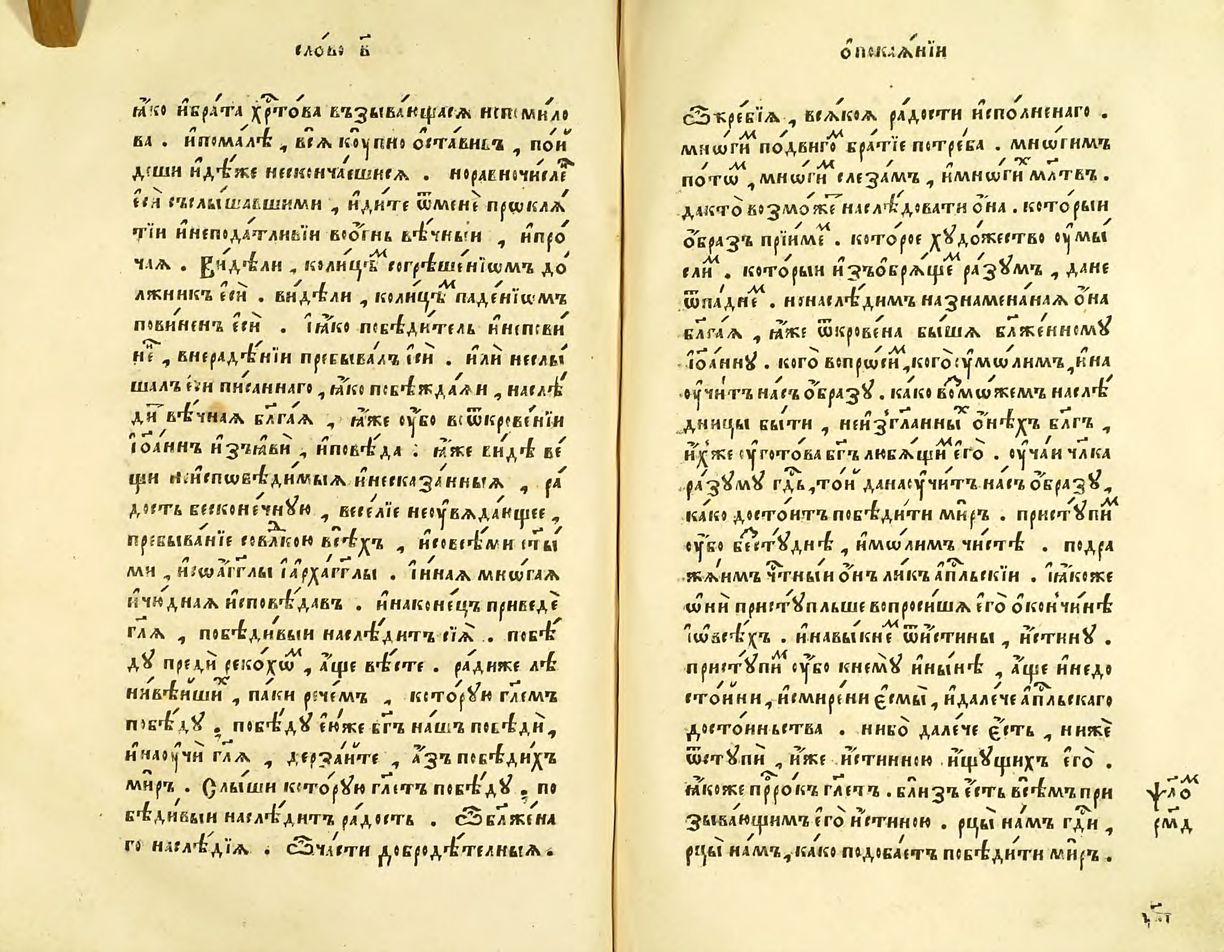 сло́во в҃
ꙗ҆́ко и҆бра́та хр҇то́ва възыва́ющасѧ непомило
ва . и҆пома́лѣ , всѧ̀ коу́пно ѡ҆ста́вивъ , пои́
деши и҆дѣ́же нескончае́шисѧ . норавночисле҇
есѝ съслы́шавшими , и҆ди́те ѿменѐ прѡклѧ́
тїи и҆неподатли́вїи во о҆́гнь вѣ́чныи , и҆про́
чаѧ . Ви́дѣли , коли́цѣᷨ согрѣше́нїѡмъ до
лжни́къ е҆сѝ . ви́дѣли , коли́цѣᷨ паде́нїѡмъ
пови́ненъ е҆сѝ . І҆а҆́ко побѣди́тель и҆непови́
не҇ , внерадѣ́нїи пребыва́лъ е҆сѝ . и҆лѝ неслы́
шалъ е҆сѝ пи́саннаго , ꙗ҆́ко побѣжда́ѧи , наслѣ
ди҇ вѣ́чнаѧ бл҃га́ѧ , ꙗ҆́же оу҆́бо во ѿкрове́нїи
І҆ѡ҆а́ннъ и҆зъꙗвѝ , и҆повѣ́да : ꙗ҆́же ви́дѣ ве́
щи неи҆сповѣди́мыѧ и҆несказа́нныѧ , ра́
дость бесконе́чнꙋю , весе́лїе неоувѧда́ющее ,
пребыва́нїе совлⷣкою всѣ́хъ , и҆совсѣ́ми ст҃ы́
ми , и҆соа҆́гг҃лы і҆а҆рха́гг҃лы . і҆и҆на́ѧ мнѡ́гаѧ
и҆чю́днаѧ и҆сповѣ́давъ . и҆наконе́цъ приведѐ
гл҃ѧ , побѣди́выи наслѣ́дитъ сїѧ̀ . побѣ́
дꙋ преди́ реко́хѡᷨ , а҆́ще вѣ́сте . ра́диже лѣ
ни́вѣишиⷯ , па́ки рече́мъ , кото́рꙋю гл҃емъ
побѣ́дꙋ . побѣ́дꙋ е҆ю́же бг҃ъ на́шъ побѣдѝ ,
и҆наоучѝ гл҃ѧ , дерза́ите , а҆́зъ побѣди́хъ
ми́ръ . Слы́ши кото́рꙋю гл҃етъ побѣ́дꙋ . по
бѣди́выи наслѣ́дитъ ра́дость . Ѿ блаже́на
го наслѣ́дїѧ . Ѿ ча́сти добродѣ́телныѧ .
ѡ҆покаѧ́нїи
Ѿ скре́бїѧ , всѧ́коѧ ра́дости и҆спо́лненаго .
мнѡ́гиᷨ по́двигоᷨ бра́тїе потре́ба . мнѡ́гимъ
по́тѡᷨ , мнѡ́гиᷨ слеза́мъ , и҆мнѡ́гиⷯ мл҃твъ .
дакто̀ возмо́же҇ наслѣ́довати ѡ҆на̀ . кото́рыи
ѡ҆́бразъ прїи́меᷨ . кото́рое хꙋдо́жество оу҆мы́
слиᷨ . кото́рыи и҆зъѡ҆брѧ́щеᷨ ра́зꙋмъ , дане
ѿпадне́ᷨ . нонаслѣ́димъ назна́менанаѧ ѡ҆на̀
бл҃га́ѧ , ꙗ҆́же ѿкрове́на бы́шѧ бл҃же́нномꙋ
І҆ѡ҆а́ннꙋ . кого̀ вопро́сиᷨ , кого̀ оу҆мо́лимъ , и҆на
оучи́тъ на́съ ѡ҆́бразꙋ . ка́ко возⷨмо́жемъ наслѣ́
дницы бы́ти , неи҆зг҃нанныⷯ ѡ҆нѣ́хъ бл҃гъ ,
и҆́хже оу҆гото́ва бг҃ъ лю́бѧщиᷨ е҆го̀ . оу҆ча́и чл҃ка
ра́зꙋмꙋ гд҇ь , то́и данаоучи́тъ на́съ ѡ҆́бразꙋ ,
ка́ко досто́итъ побѣди́ти ми́ръ . присту́пиᷨ
оу҆́бо бестꙋ́днѣ , и҆мо́лимъ чи́стѣ . подра
жа́имъ че҇тны́и ѡ҆́нъ ли́къ а҆пⷭ҇льскїи . І҆а҆́коже
ѡ҆нѝ пристꙋ́пльше вопроси́шѧ е҆го̀ ѡ҆кончи́нѣ
і҆ѡ҆всѣ́хъ . и҆навы́кнеᷨ ѿи҆́стины , и҆́стинꙋ .
пристꙋ́пиᷨ оу҆́бо кнемꙋ̀ и҆ны́нѣ , а҆́ще и҆недо
сто́йни , и҆смире́ни е҆смы̀ , и҆дале́че а҆пⷭ҇льскаго
досто́иньства . нибо̀ дале́че е҆́сть , нижѐ
ѿстꙋпѝ , и҆́же и҆́стинною и҆́щꙋщихъ е҆го̀ .
ꙗ҆́коже прⷪ҇ро́къ гл҃етъ . бли́зъ е҆́сть всѣ́мъ при
зыва́ющимъ е҆го̀ и҆́стиною . рцы̀ на́мъ гд҇и ,
рцы̀ на́мъ , ка́ко подоба́етъ побѣди́ти ми́ръ .
ѱало́ᷨ
рм҃д